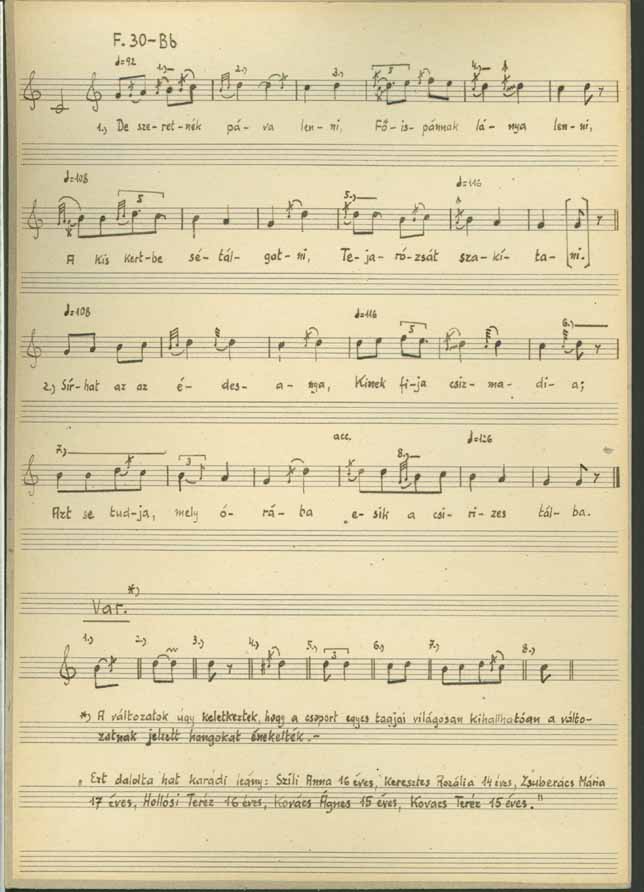 F. 30-Bb
♩=92 1.,) 2.,) 3.,) 5 4.,)
1.,) De sze-ret-nék pá-va len-ni, Fő-is-pánnak lá-nya len-ni,
♩=108 5 5.,) ♩=116
A kis kert-be sé-tál-gat-ni, Te-ja-ró-zsát sza-kí-ta-[ni.]
♩=108 ♩=116 5 6.,)
2.,) Sír-hat az az é-des-a-nya, Kinek fi-ja csiz-ma-di-a;
7.,) 3 acc. 8.,) ♩=126
Azt se tud-ja, mely ó-rá-ba e-sik a csi-ri-zes tál-ba.
Var. *)
1.,) 2.,) 3.,) 4.,) 5.,) 3 6.,) 7.,) 8.,)
*) A változatok úgy keletkeztek, hogy a csoport egyes tagjai világosan kihallhatóan aválto-
zatnak jelzett hangokat énekelték.-
„Ezt dalolta hat karádi leány: Szili Anna 16 éves, Keresztes Rozália 14 éves, Zsuberács Mária
17 éves, Hollósi Teréz 16 éves, Kovács Ágnes 15 éves, Kovacs Teréz 15 éves."